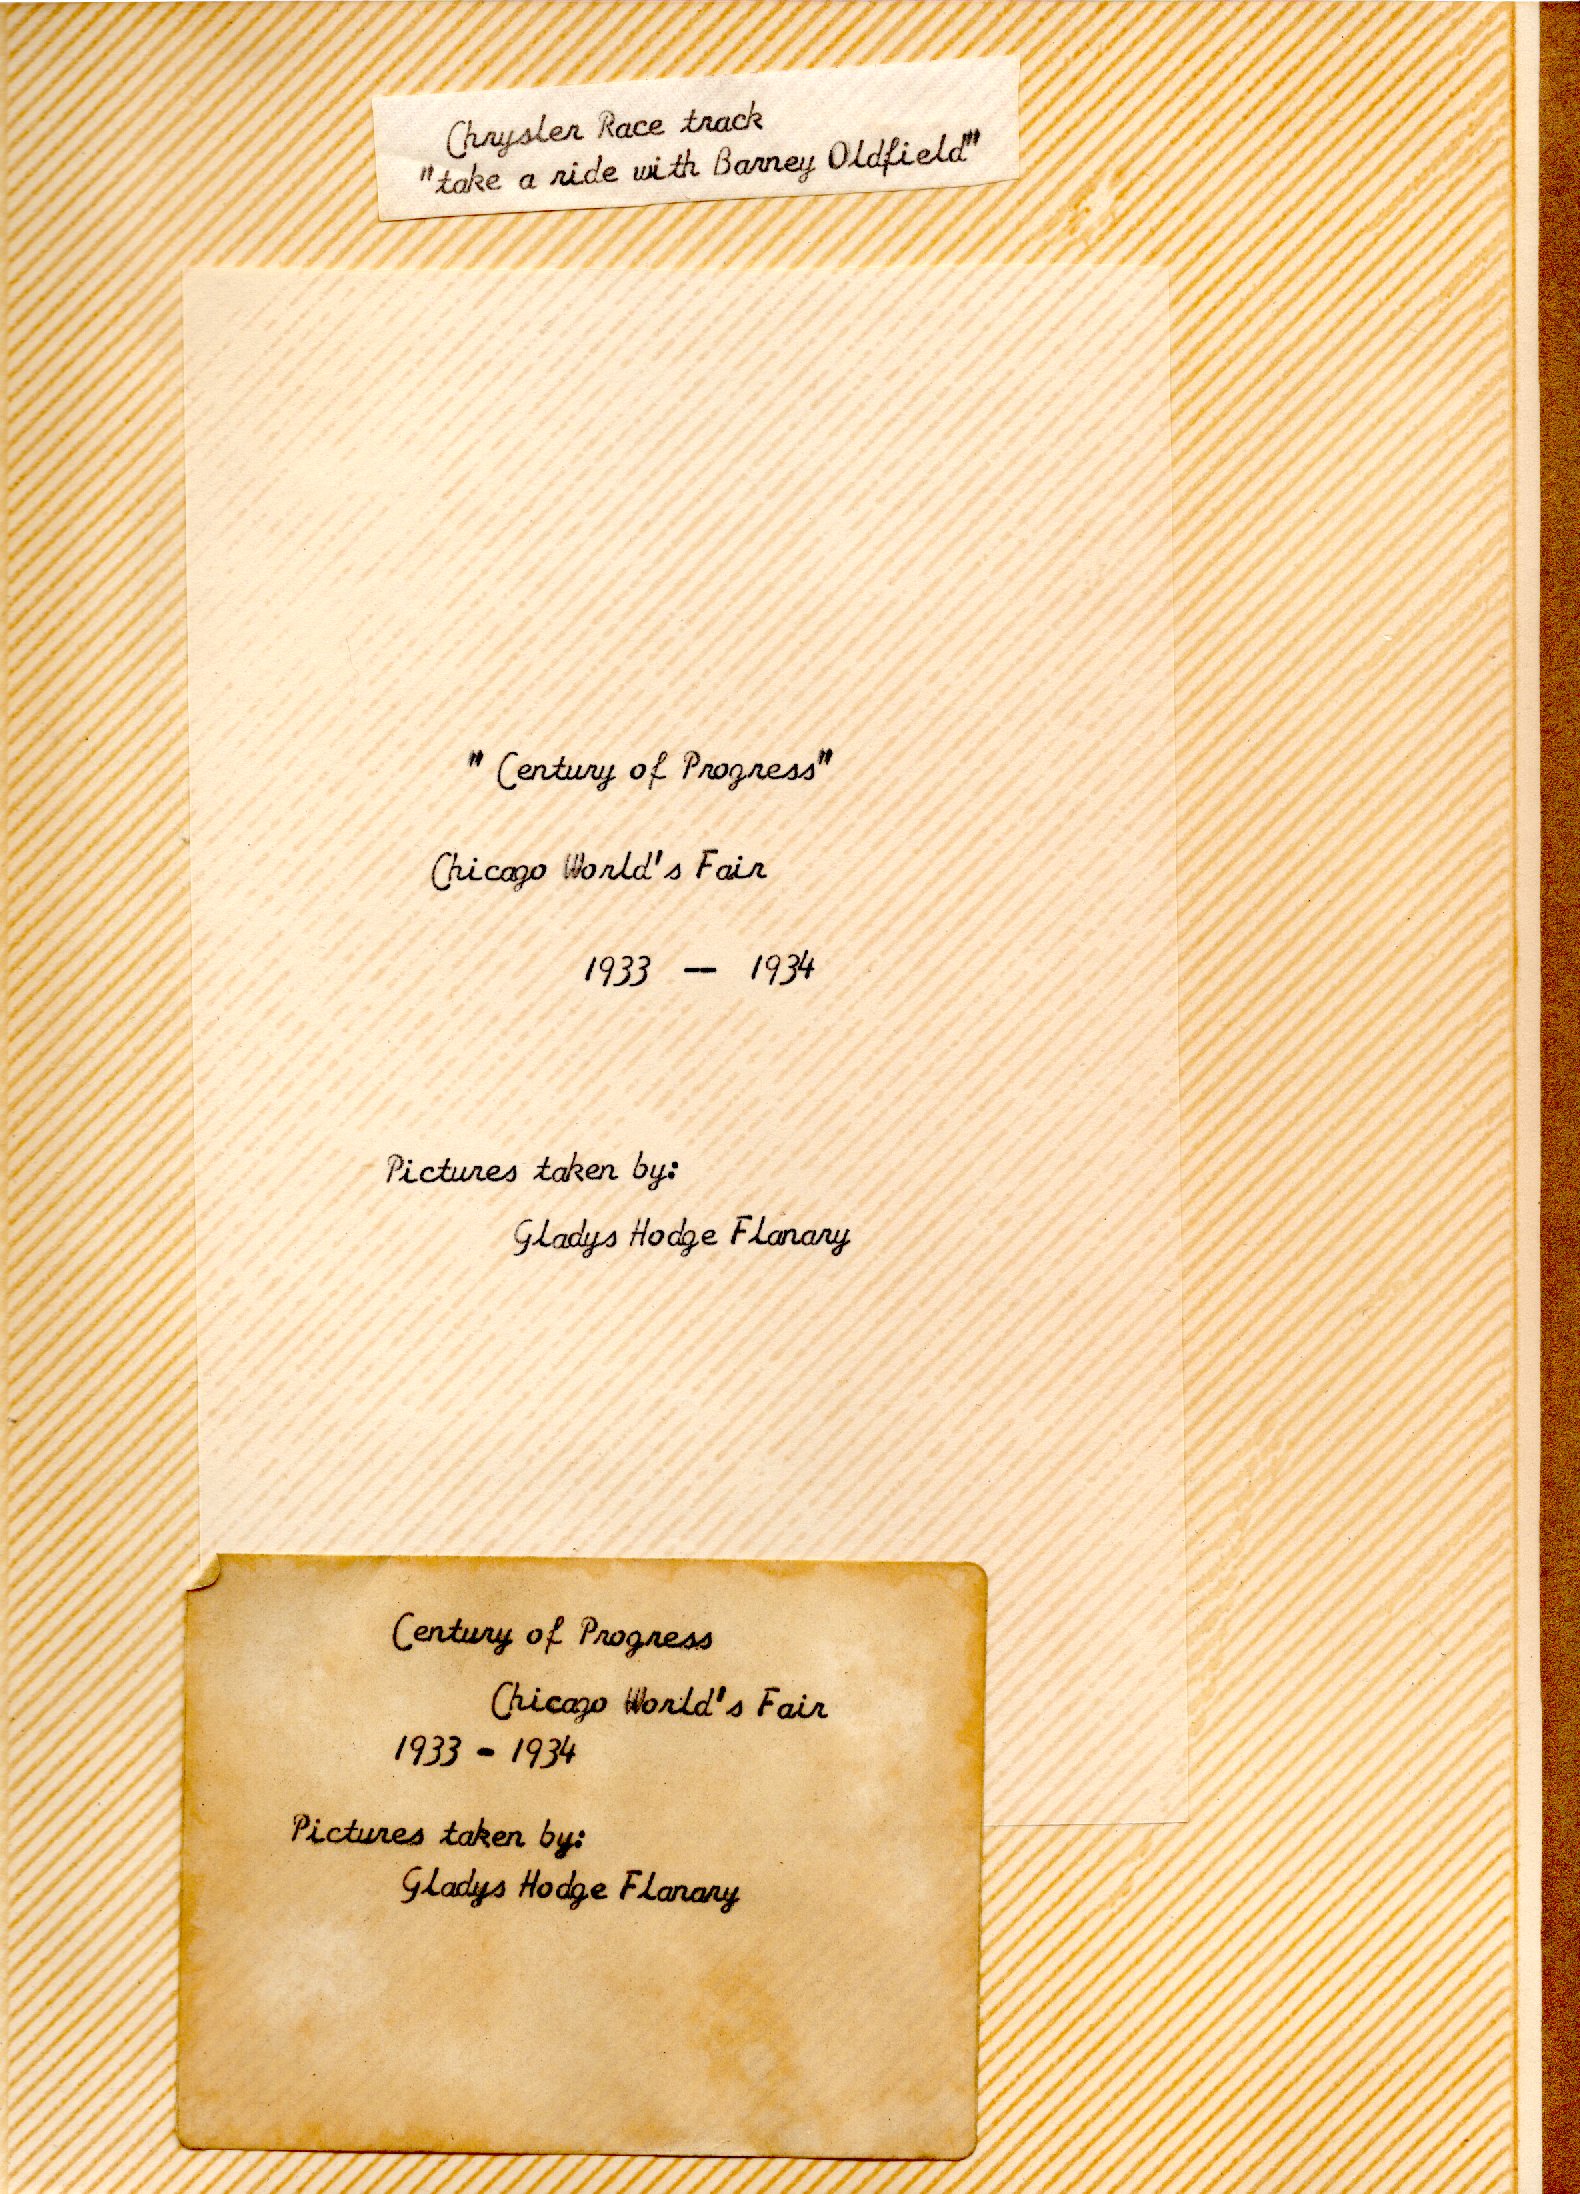 Chrysler Race track
"take a ride with Barney Oldfield"
" Century of Progress"
Chicago World's Fair
1933 — 1934
Pictures taken by:
Gladys Hodge Flanary
Century of Progress
Chicago World's Fair
1933 - 1934
Pictures taken by:
Gladys Hodge Flanary